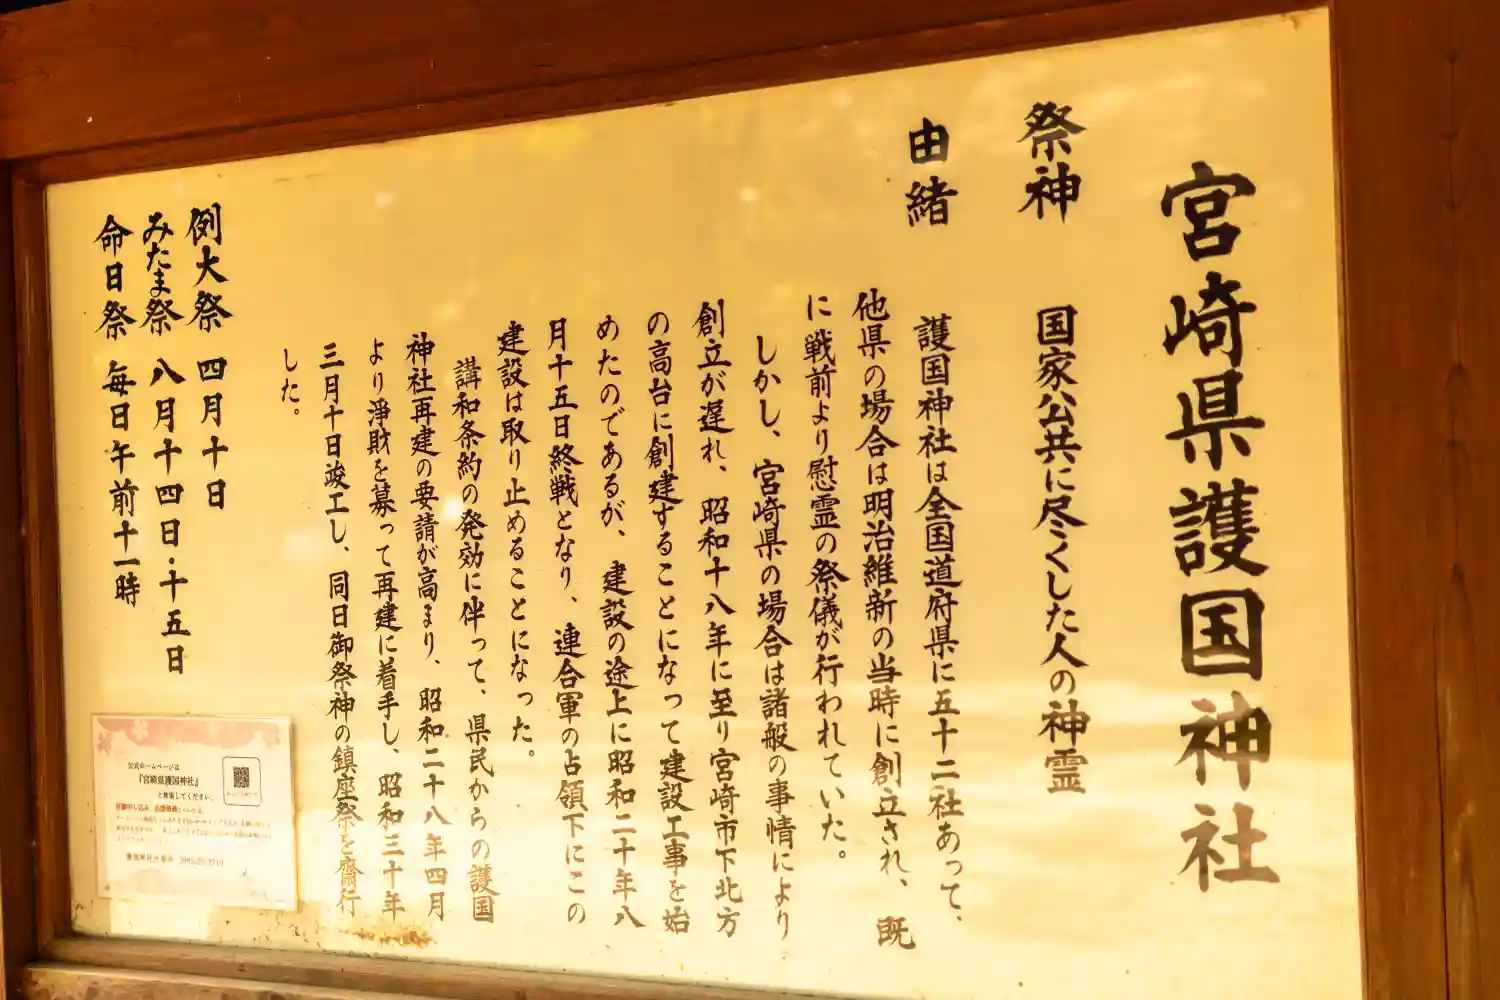 宮崎県護国神社
祭神 国家公共に尽くした人の神霊
由緒
護国神社は全国道府県に五十二社あって、
他県の場合は明治維新の当時に創立され、既
に戦前より慰霊の祭儀が行われていた。
しかし、宮崎県の場合は諸般の事情により
創立が遅れ、昭和十八年に至り宮崎市下北方
の高台に創建することになって建設工事を始
めたのであるが、建設の途上に昭和二十年八
月十五日終戦となり、連合軍の占領下にこの
建設は取り止めることになった。
講和条約の発効に伴って、県民からの護国
神社再建の要請が高まり、昭和二十八年四月
より浄財を募って再建に着手し、昭和三十年
三月十日竣工し、同日御祭神の鎮座祭を齋行
した。
例大祭 四月十日
みたま祭 八月十四日・十五日
命日祭 毎日午前十一時
公式ホームページは
『宮崎県護国神社』
と検索してください。